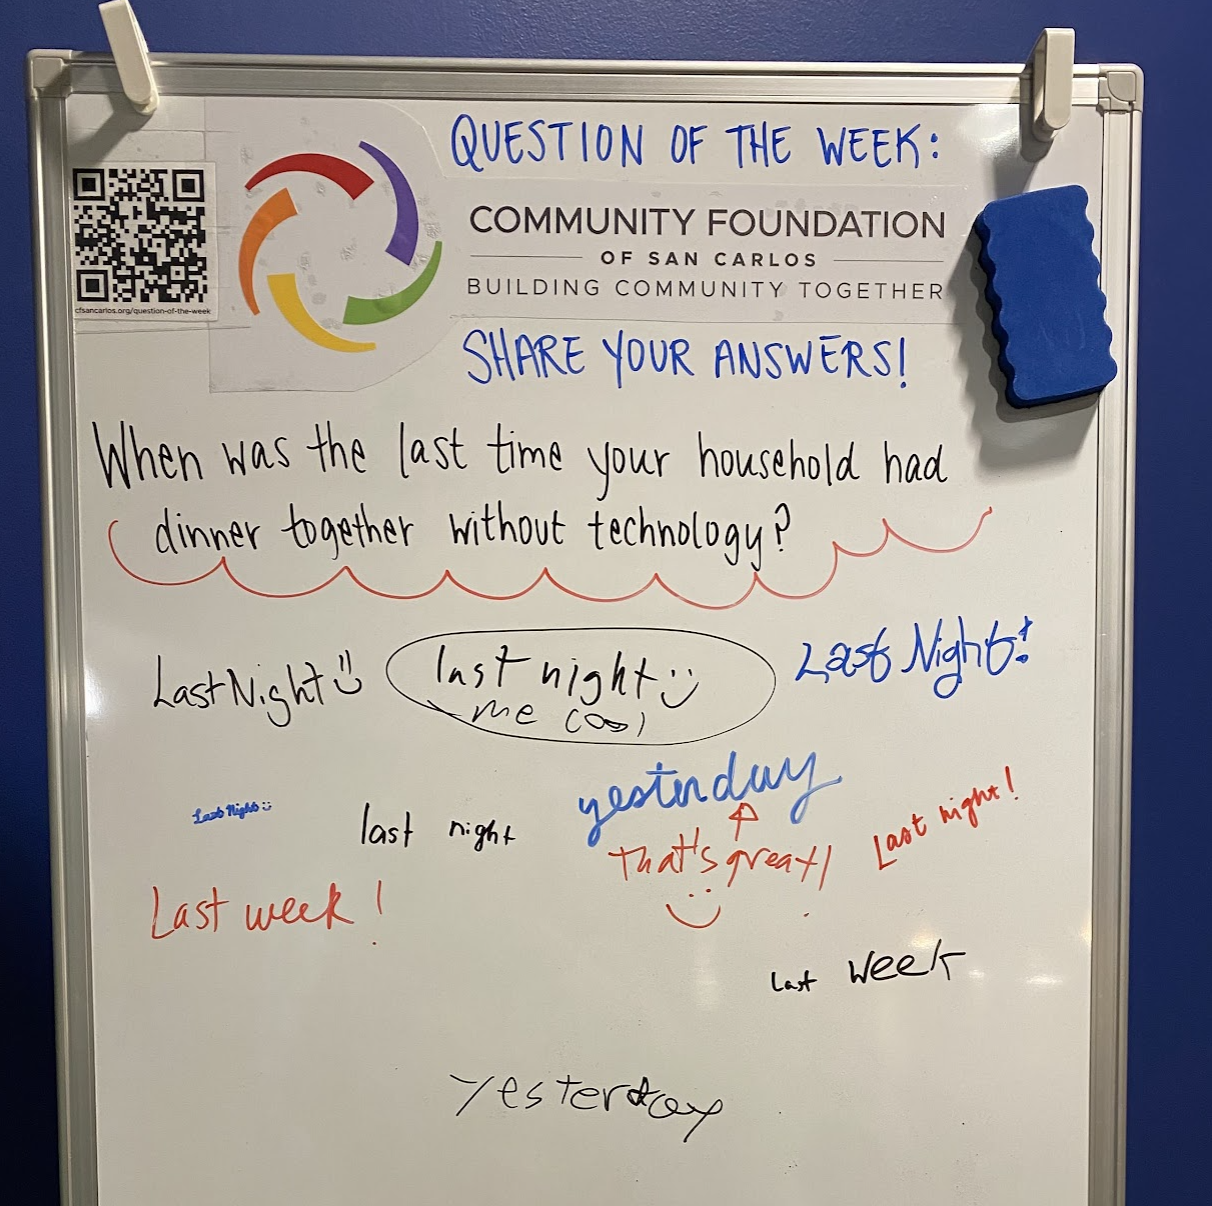 QUESTION OF THE WEEK:
COMMUNITY FOUNDATION
OF SAN CARLOS
BUILDING COMMUNITY TOGETHER
cfsancarlos.org/question-of-the-week
SHARE YOUR ANSWERS!
When was the last time your household had
dinner together without technology?
Last Night
last night
me cool
Last Night!
Last Night
last night
yesterday
That's great!
Last night!
Last week!
Last week
Yesterday